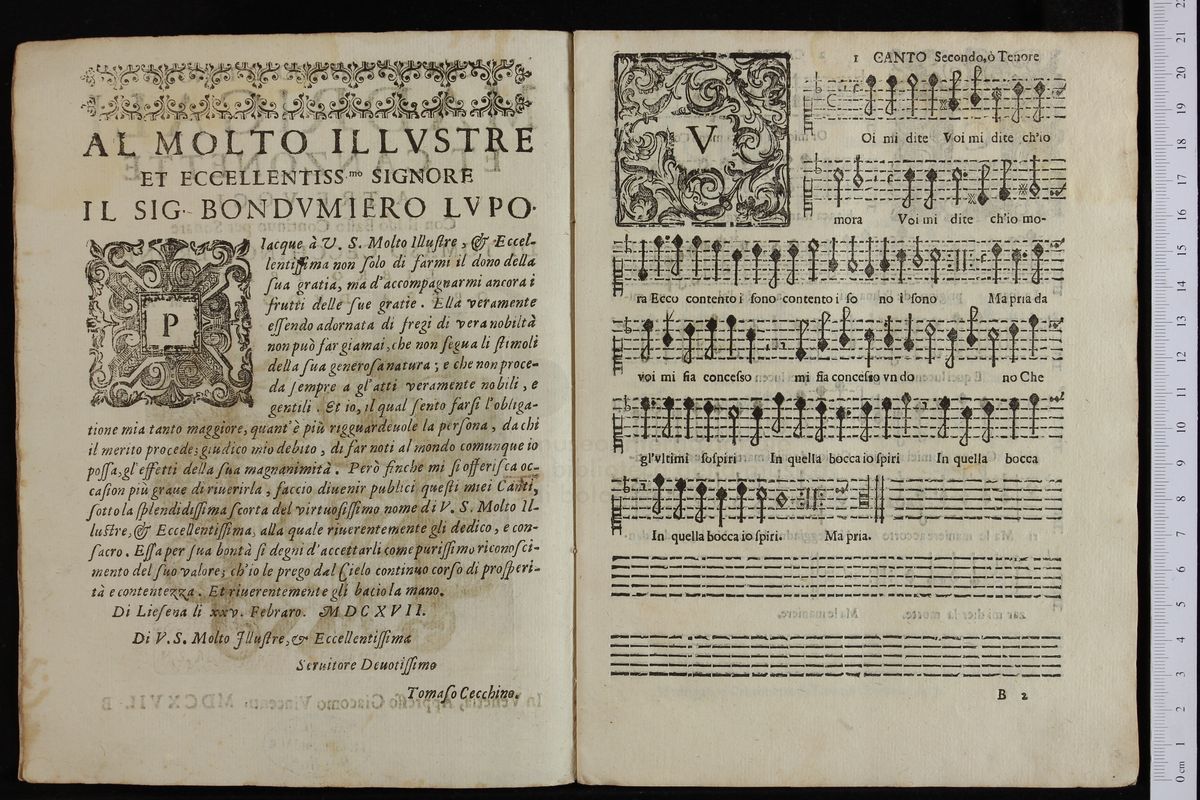 AL MOLTO ILLVSTRE
ET ECCELLENTISS.mo SIGNORE
IL SIG. BONDVMIERO LVPO.
PIacque à V. S. Molto Illuſtre, & Eccel-
lentiſſima non ſolo di farmi il dono della
ſua gratia, ma d'accompagnarmi ancora i
frutti delle ſue gratie. Ella veramente
eſſendo adornata di fregi di vera nobiltà
non può far giamai, che non ſegua li ſtimoli
della ſua generoſa natura; e che non proce-
da ſempre a gl'atti veramente nobili, e
gentili. Et io, il qual ſento farſi l'obliga-
tione mia tanto maggiore, quant'è più rigguardeuole la perſona, da chi
il merito procede; giudico mio debito, di far noti al mondo comunque io
poſſa, gl'effetti della ſua magnanimità. Però finche mi ſi offeriſca oc-
caſion più graue di riuerirla, faccio diuenir publici queſti miei Canti,
ſotto la ſplendidiſſima ſcorta del virtuoſiſſimo nome di V. S. Molto Il-
luſtre, & Eccellentiſſima, alla quale riuerentemente gli dedico, e con-
ſacro. Eſſa per ſua bontà ſi degni d'accettarli come puriſſimo riconoſci-
mento del ſuo valore; ch'io le prego dal Cielo continuo corſo di proſperi-
tà e contentezza. Et riuerentemente gli bacio la mano.
Di Lieſena li xxv. Febraro. MDCXVII.
Di V. S. Molto Illuſtre, & Eccellentiſſima
Seruitore Deuotiſſimo
Tomaſo Cecchino.
1 CANTO Secondo, ò Tenore
V
Oi mi dite Voi mi dite ch'io
mora Voi mi dite ch'io mo-
ra Ecco contento i ſono contento i ſo no i ſono Ma pria da
voi mi ſia conceſſo mi ſia conceſſo vn do no Che
gl'vltimi ſoſpiri In quella bocca io ſpiri In quella bocca
In quella bocca io ſpiri. Ma pria.
B 2
0 cm 1 2 3 4 5 6 7 8 9 10 11 12 13 14 15 16 17 18 19 20 21